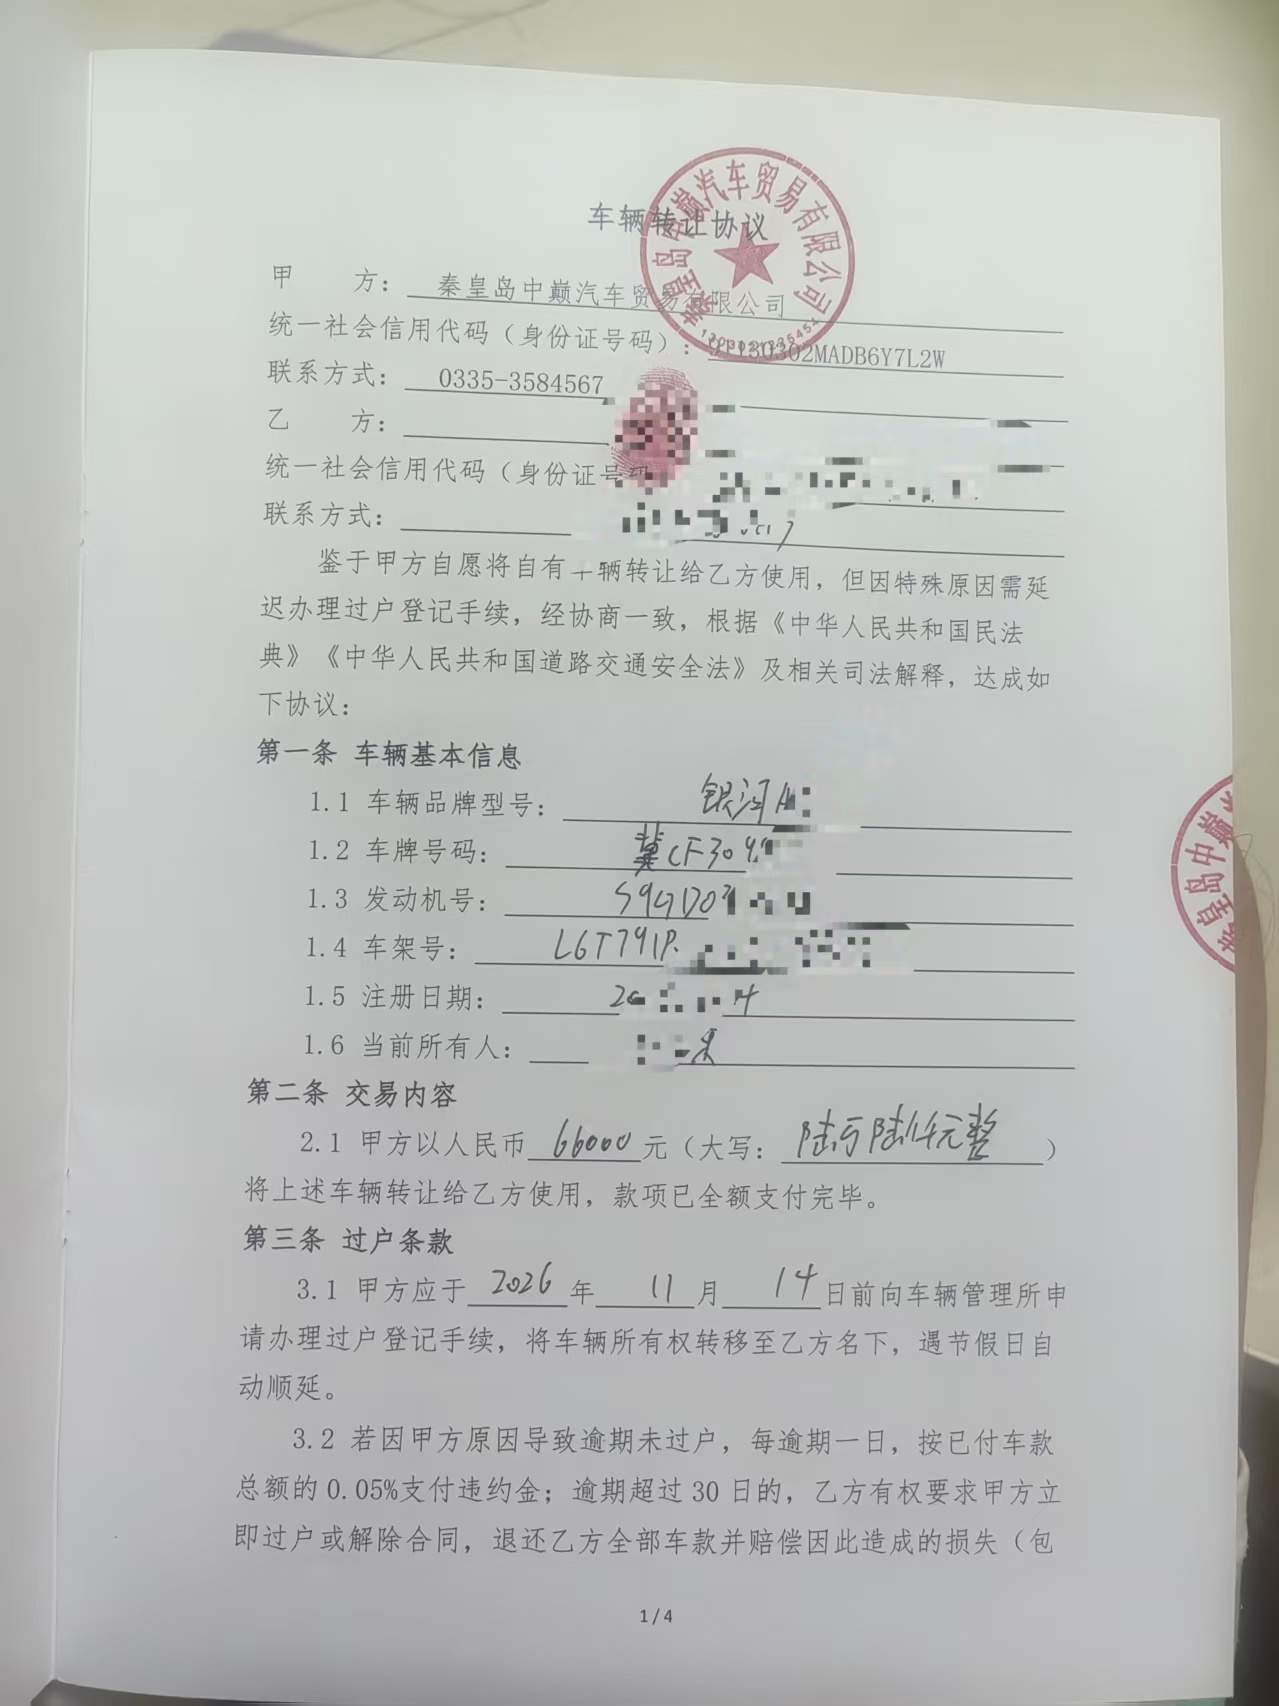 车辆转让协议
甲 方： 秦皇岛中巅汽车贸易有限公司
统一社会信用代码（身份证号码）：91130302MADB6Y7L2W
联系方式： 0335-3584567
乙 方：
统一社会信用代码（身份证号
联系方式：
鉴于甲方自愿将自有车辆转让给乙方使用，但因特殊原因需延
迟办理过户登记手续，经协商一致，根据《中华人民共和国民法
典》《中华人民共和国道路交通安全法》及相关司法解释，达成如
下协议：
第一条 车辆基本信息
1.1 车辆品牌型号： 银河A
1.2 车牌号码： 冀CF309
1.3 发动机号：
1.4 车架号： L6T791P
1.5 注册日期：
1.6 当前所有人：
第二条 交易内容
2.1 甲方以人民币 66000 元（大写： 陆万陆仟元整 ）
将上述车辆转让给乙方使用，款项已全额支付完毕。
第三条 过户条款
3.1 甲方应于 2026 年 11 月 14 日前向车辆管理所申
请办理过户登记手续，将车辆所有权转移至乙方名下，遇节假日自
动顺延。
3.2 若因甲方原因导致逾期未过户，每逾期一日，按已付车款
总额的 0.05%支付违约金；逾期超过 30 日的，乙方有权要求甲方立
即过户或解除合同，退还乙方全部车款并赔偿因此造成的损失（包
1 / 4
秦皇岛中巅汽车贸易有限公司
秦皇岛中巅汽